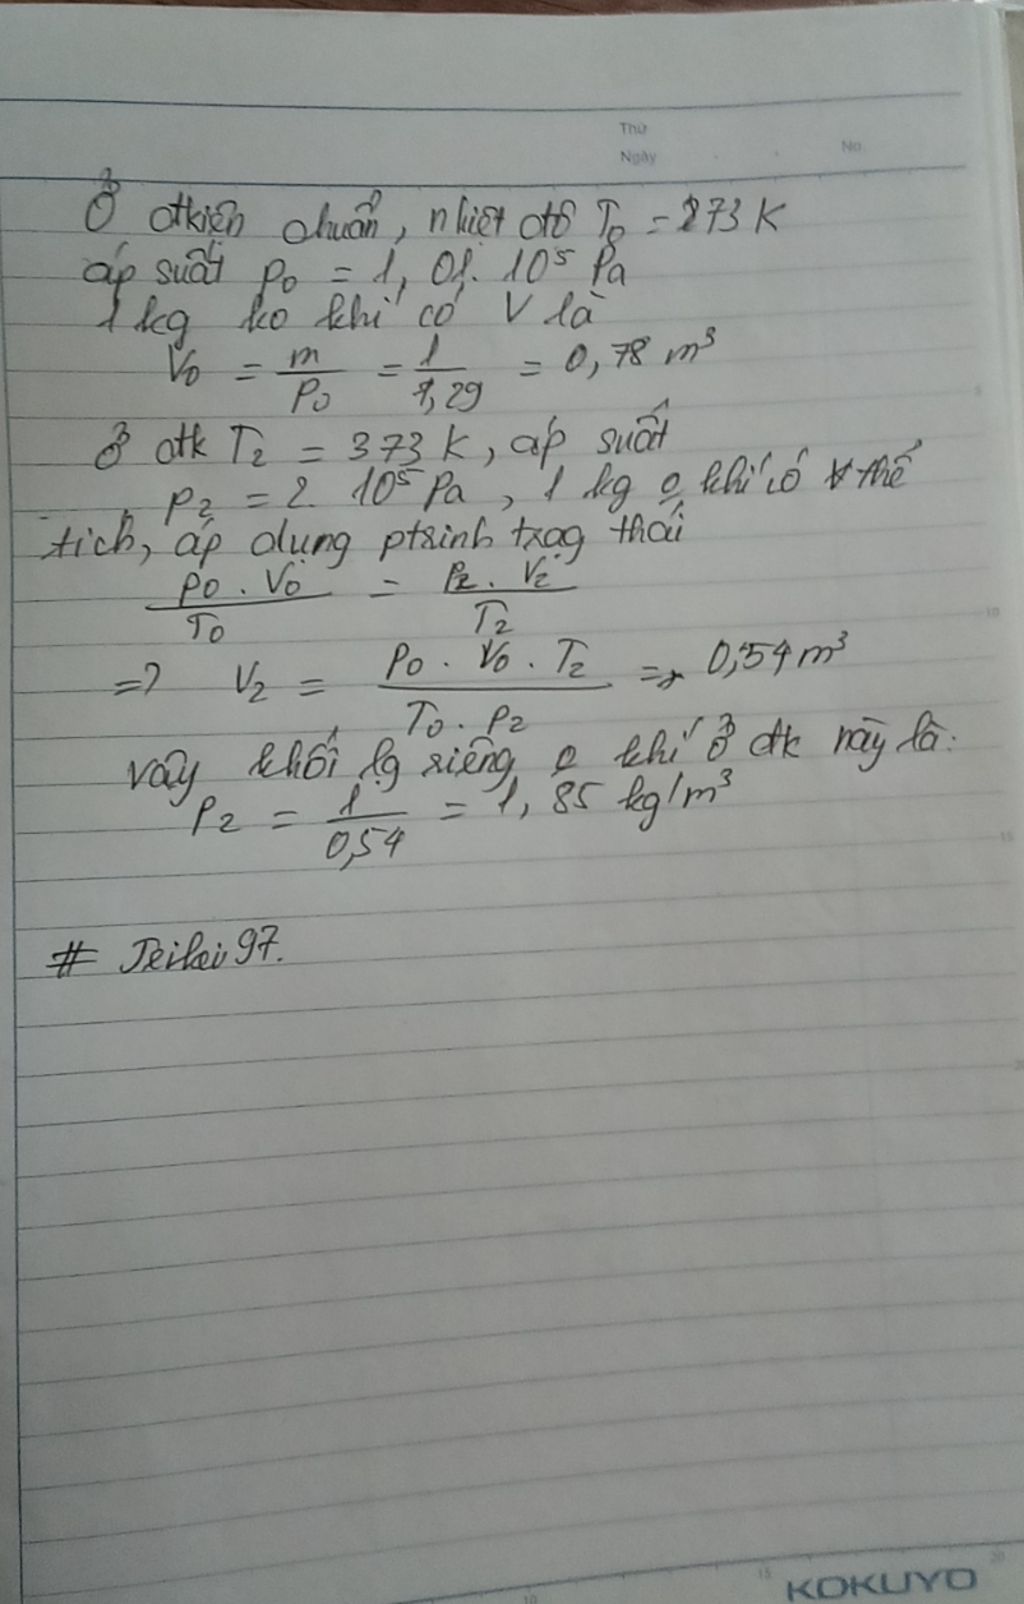 Thứ
Ngày
No.
Ở đkiện chuẩn, nhiệt độ T₀ = 273 K
áp suất p₀ = 1, 01. 10⁵ Pa
1 kg ko khí có V là
V₀ = m/ρ₀ = 1/1,29 = 0,78 m³
ở đk T₂ = 373 K, áp suất
p₂ = 2. 10⁵ Pa, 1 kg o khí có thể
tích, áp dụng ptrinh trạg thái
p₀ . V₀/T₀ = p₂ . V₂/T₂
=> V₂ = p₀ . V₀ . T₂/T₀ . p₂ = 0,54 m³
vậy khối lg riêng o khí ở đk này là:
ρ₂ = 1/0,54 = 1, 85 kg/m³
10
15
15
20
10
KOKUYO